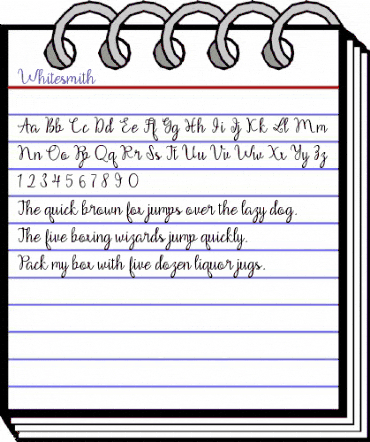 Whitesmith
Aa Bb Cc Dd Ee Ff Gg Hh Ii Jj Kk Ll Mm
Nn Oo Pp Qq Rr Ss Tt Uu Vv Ww Xx Yy Zz
1 2 3 4 5 6 7 8 9 0
The quick brown fox jumps over the lazy dog.
The five boxing wizards jump quickly.
Pack my box with five dozen liquor jugs.